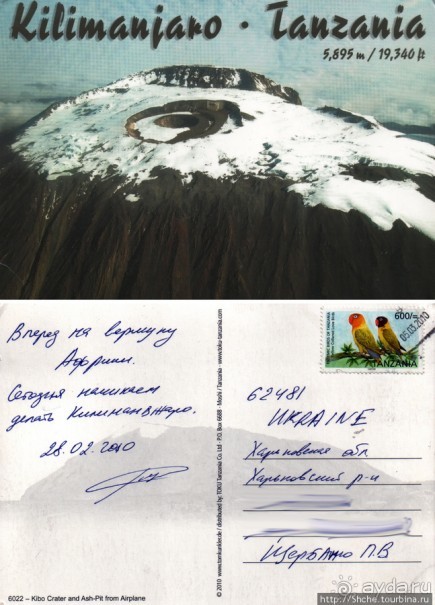 Kilimanjaro · Tanzania
5,895 m / 19,340 ft
Вперед на вершину
Африки.
Сегодня начинаем
делать Килиманджаро.
28.02.2010
600/=
TANZANIA
05.03.2010
62481
UKRAINE
Харьковская обл
Харьковский р-н
Щербатко П.В
6022 – Kibo Crater and Ash-Pit from Airplane
© 2010 www.tomkunkler.de / distributed by TOKU Tanzania Co. Ltd - P.O. Box 6688 - Moshi / Tanzania - www.toku-tanzania.com
ayda.ru
http://Shche.tourbina.ru